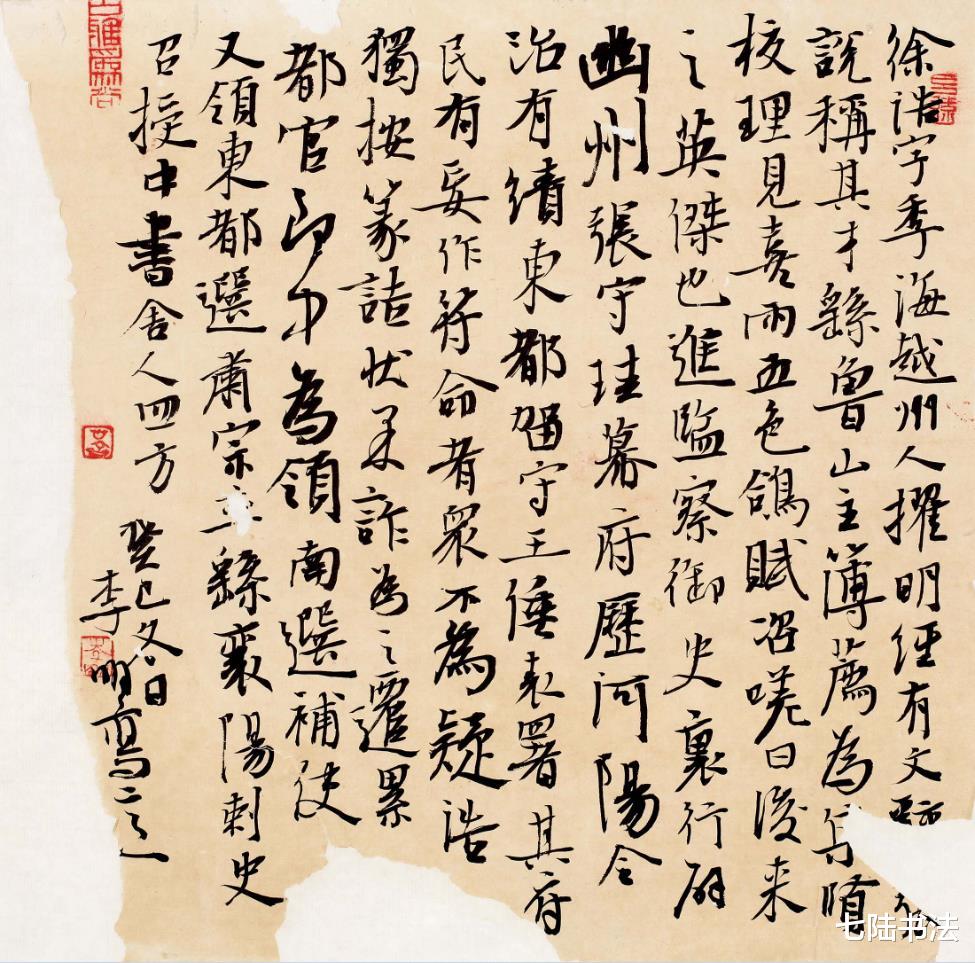 徐浩字季海越州人擢明經有文辭
說稱其才繇魯山主簿薦為集賢
校理見喜雨五色鴿賦咨嗟曰後来
之英傑也進監察御史裏行辟
幽州張守珪幕府歷河陽令
治有績東都留守王倕表署其府
民有妄作符命者眾不為疑浩
獨按篆詰状果詐為之遷累
都官郎中為領南選補使
又領東都選肅宗立繇襄陽刺史
召授中書舍人四方
癸巳冬日
李明寫之
七陆书法